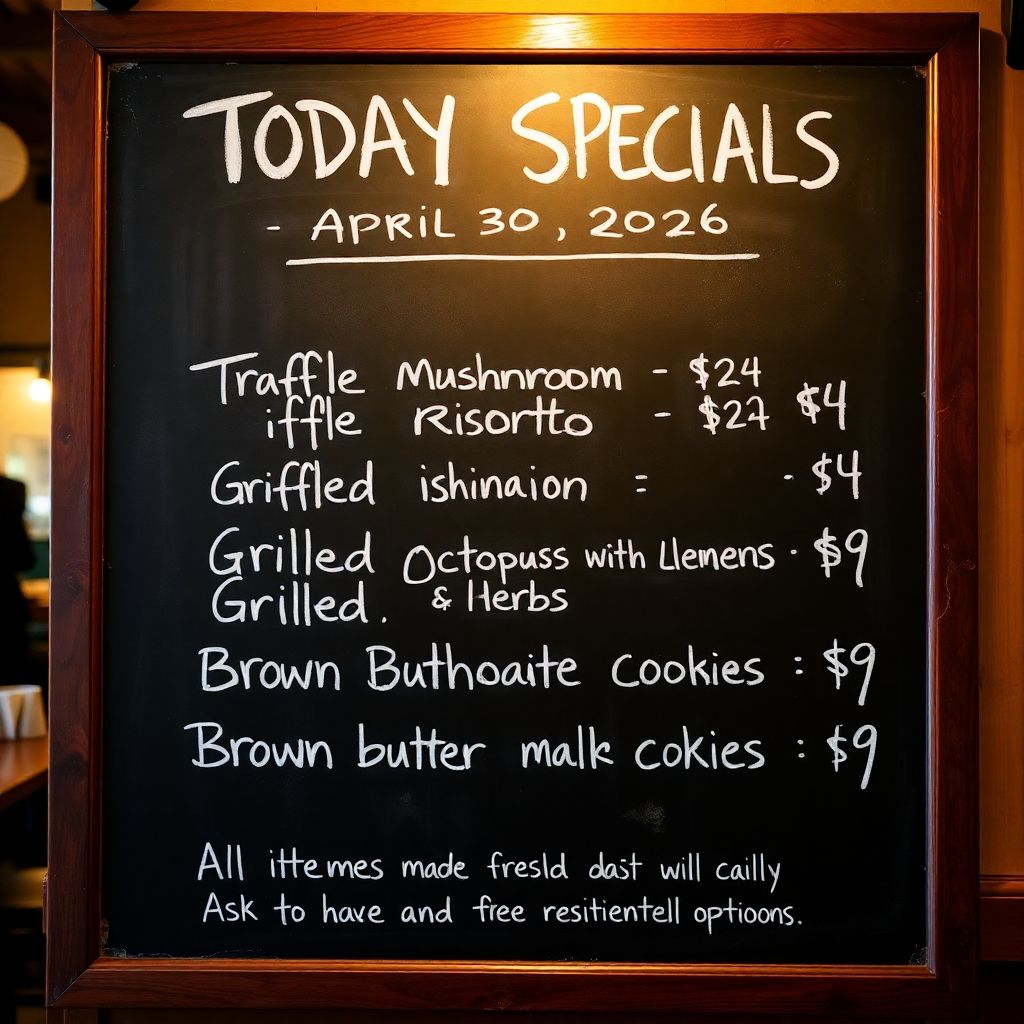 TODAY SPECIALS
- APRiL 30, 2026
Traffle Mushnroom - $24
iffle Risortto - $27 $4
Griffled ishinaion : - $4
Grilled Octopuss with Llemens · $9
Grilled. & Herbs
Brown Buthoaite cookies : $9
Brown butter malk cokies : $9
All ittemes made fresld daist will cailly
Ask to have and free resitientell optioons.